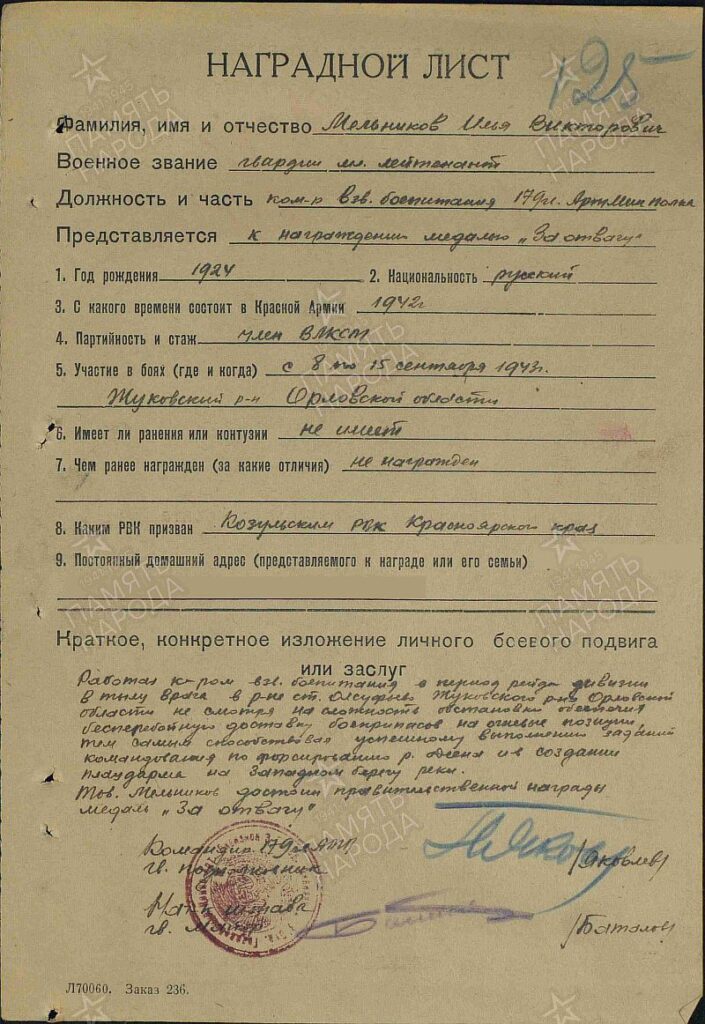 125
НАГРАДНОЙ ЛИСТ
Фамилия, имя и отчество Мельников Илья Викторович
Военное звание гвардии мл. лейтенант
Должность и часть ком-р взв. боепитания 179 гв. АртМин полка
Представляется к награждению медалью „За отвагу"
1. Год рождения 1924 2. Национальность русский
3. С какого времени состоит в Красной Армии 1942 г
4. Партийность и стаж член ВЛКСМ
5. Участие в боях (где и когда) с 8 по 15 сентября 1943 г.
Жуковский р-н Орловской области
6. Имеет ли ранения или контузии не имеет
7. Чем ранее награжден (за какие отличия) не награжден
8. Каким РВК призван Козульским РВК Красноярского края
9. Постоянный домашний адрес (представляемого к награде или его семьи)
Краткое, конкретное изложение личного боевого подвига
или заслуг
Работая к-ром взв. боепитания в период рейда дивизии
в тылу врага в р-не ст. Олсуфьево Жуковского р-на Орловской
области не смотря на сложность обстановки обеспечил
бесперебойную доставку боеприпасов на огневые позиции,
тем самым способствовал успешному выполнению заданий
командования по форсированию р. Десна и в создании
плацдарма на Западном берегу реки.
Тов. Мельников достоин правительственной награды
медаль „За отвагу"
Командир 179 гв. АМП
гв. подполковник /Яковлев/
Нач. штаба
гв. майор /Баталов/
Л70060. Заказ 236.
ПАМЯТЬ
НАРОДА